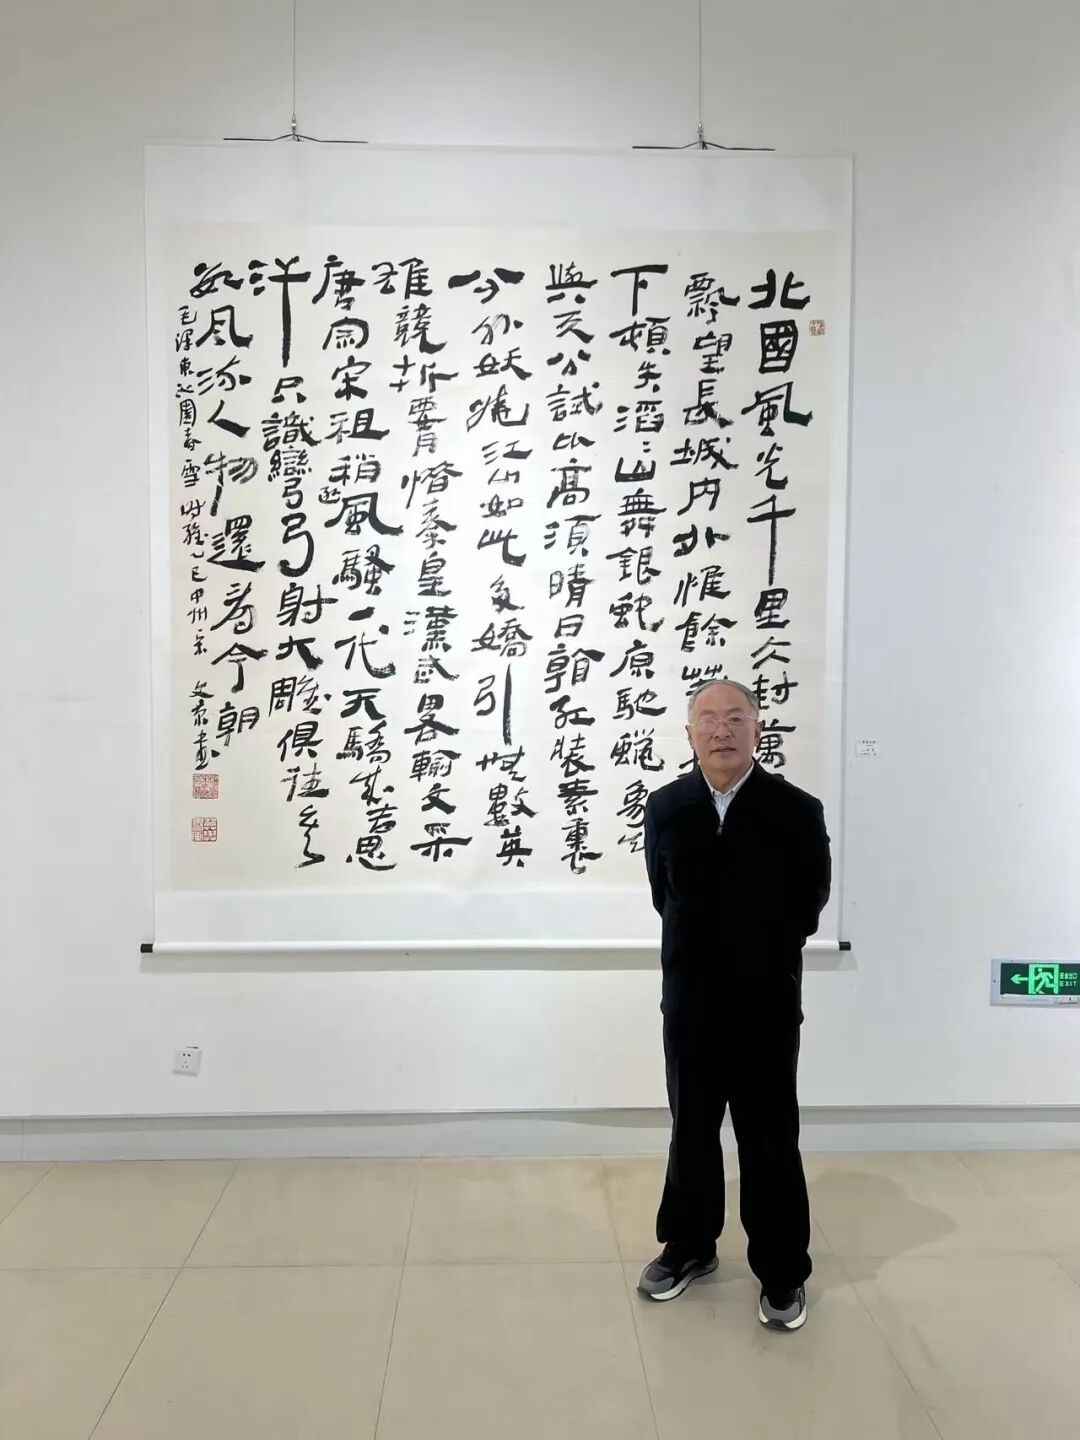 北國風光千里仌封萬
飄望長城内外惟餘莽
下頓失滔〻山舞銀蛇原馳蠟象
與天公試比高須晴日看紅裝素裹
分外妖嬈江山如此多嬌引無數英
雄競折要惜秦皇漢武畧輸文采
唐宗宋祖稍遜風騷一代天驕成吉思
汗只識彎弓射大雕俱往矣
数風流人物還看今朝
毛澤東沁園春雪時維乙巳 文京書
安全出口
EXIT